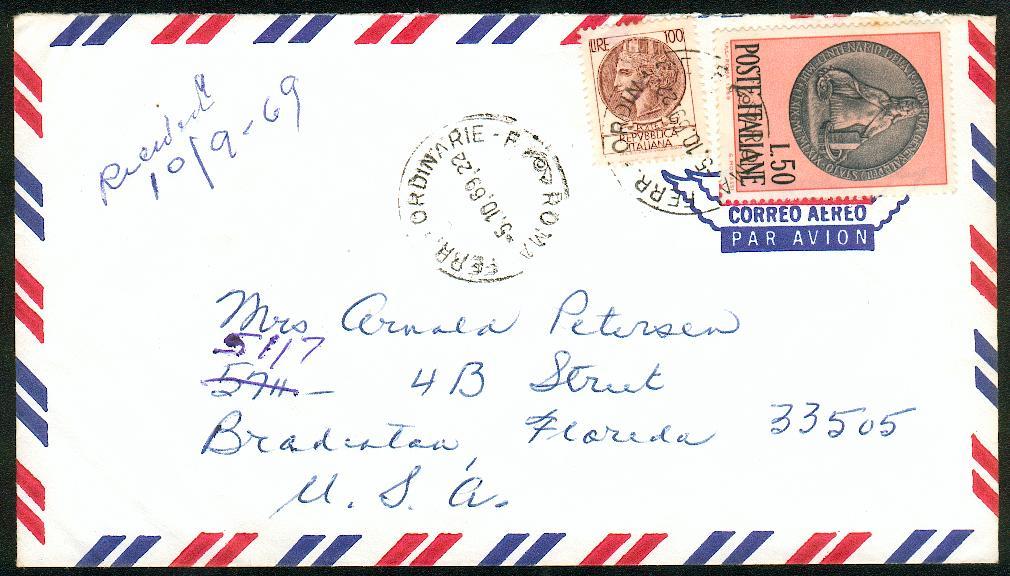 Received
10/9-69
LIRE 100
REPVBBLICA
ITALIANA
POSTE ITALIANE
L.50
FERR. ORDINARIE - ROMA
-5.10.69.22
CORREO AEREO
PAR AVION
Mrs Arnold Petersen
5117
4B Street
Bradenton, Florida 33505
U. S. A.